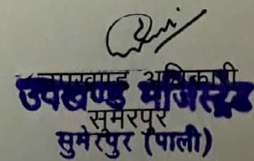 उपखण्ड अधिकारी
उपखण्ड मजिस्ट्रेट
सुमेरपुर
सुमेरपुर (पाली)